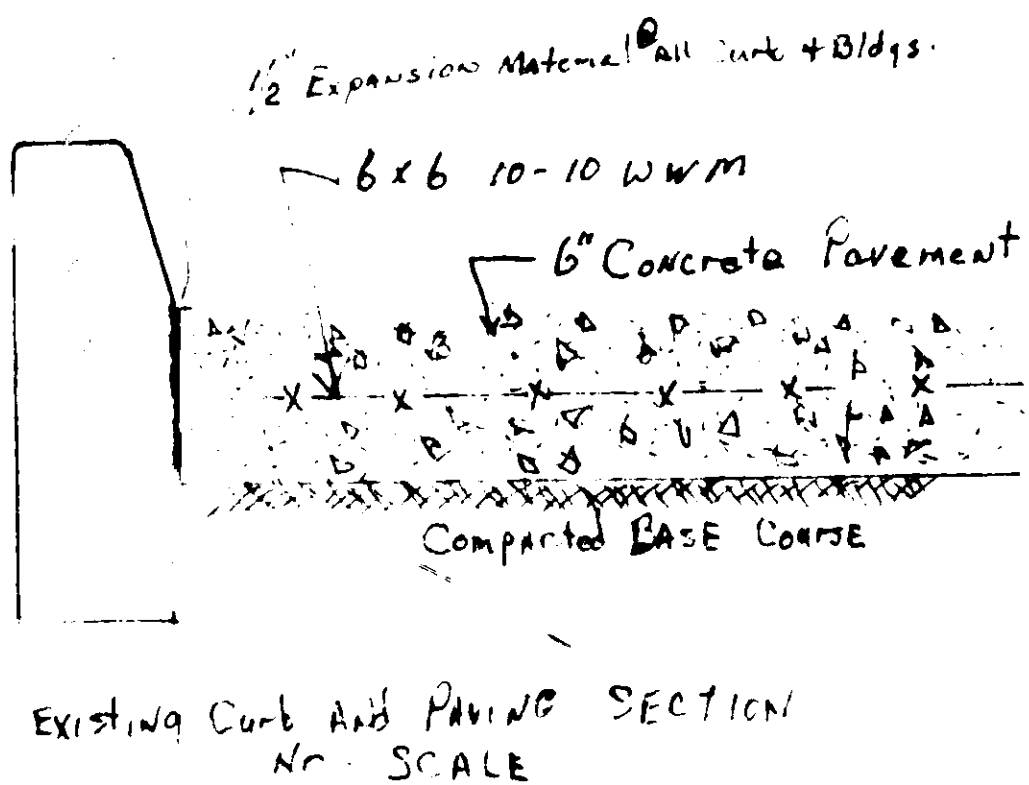 1/2" Expansion Material @ All Curb + Bldgs.
6 x 6 10-10 WWM
6" Concrete Pavement
Compacted BASE Course
Existing Curb And Paving SECTION
No SCALE